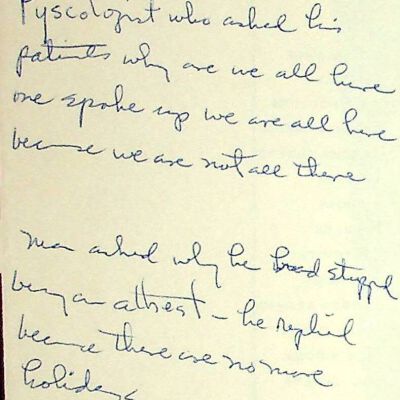 Pyscologist who asked his
patients why are we all here
one spoke up we are all here
because we are not all there
Man asked why he had stopped
being an atheist – he replied
because there are no more
holidays